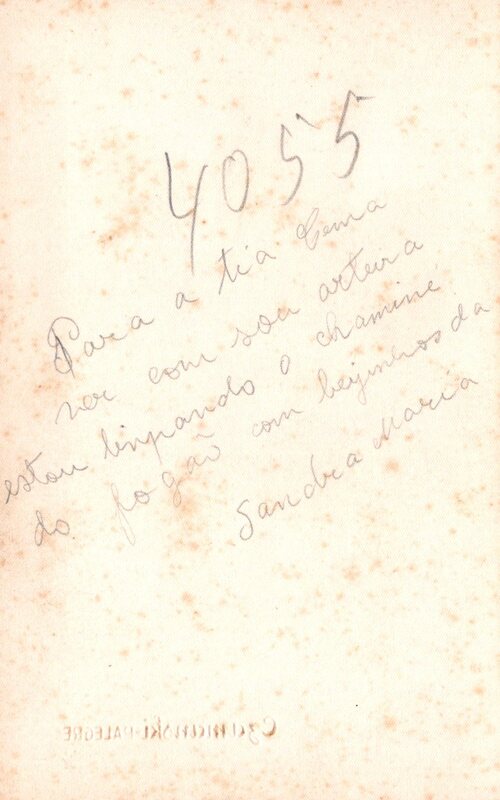 4055
Para a tia Cema
ver com sou arteira
estou limpando o chaminé
do fogão com beijinhos da
Sandra Maria